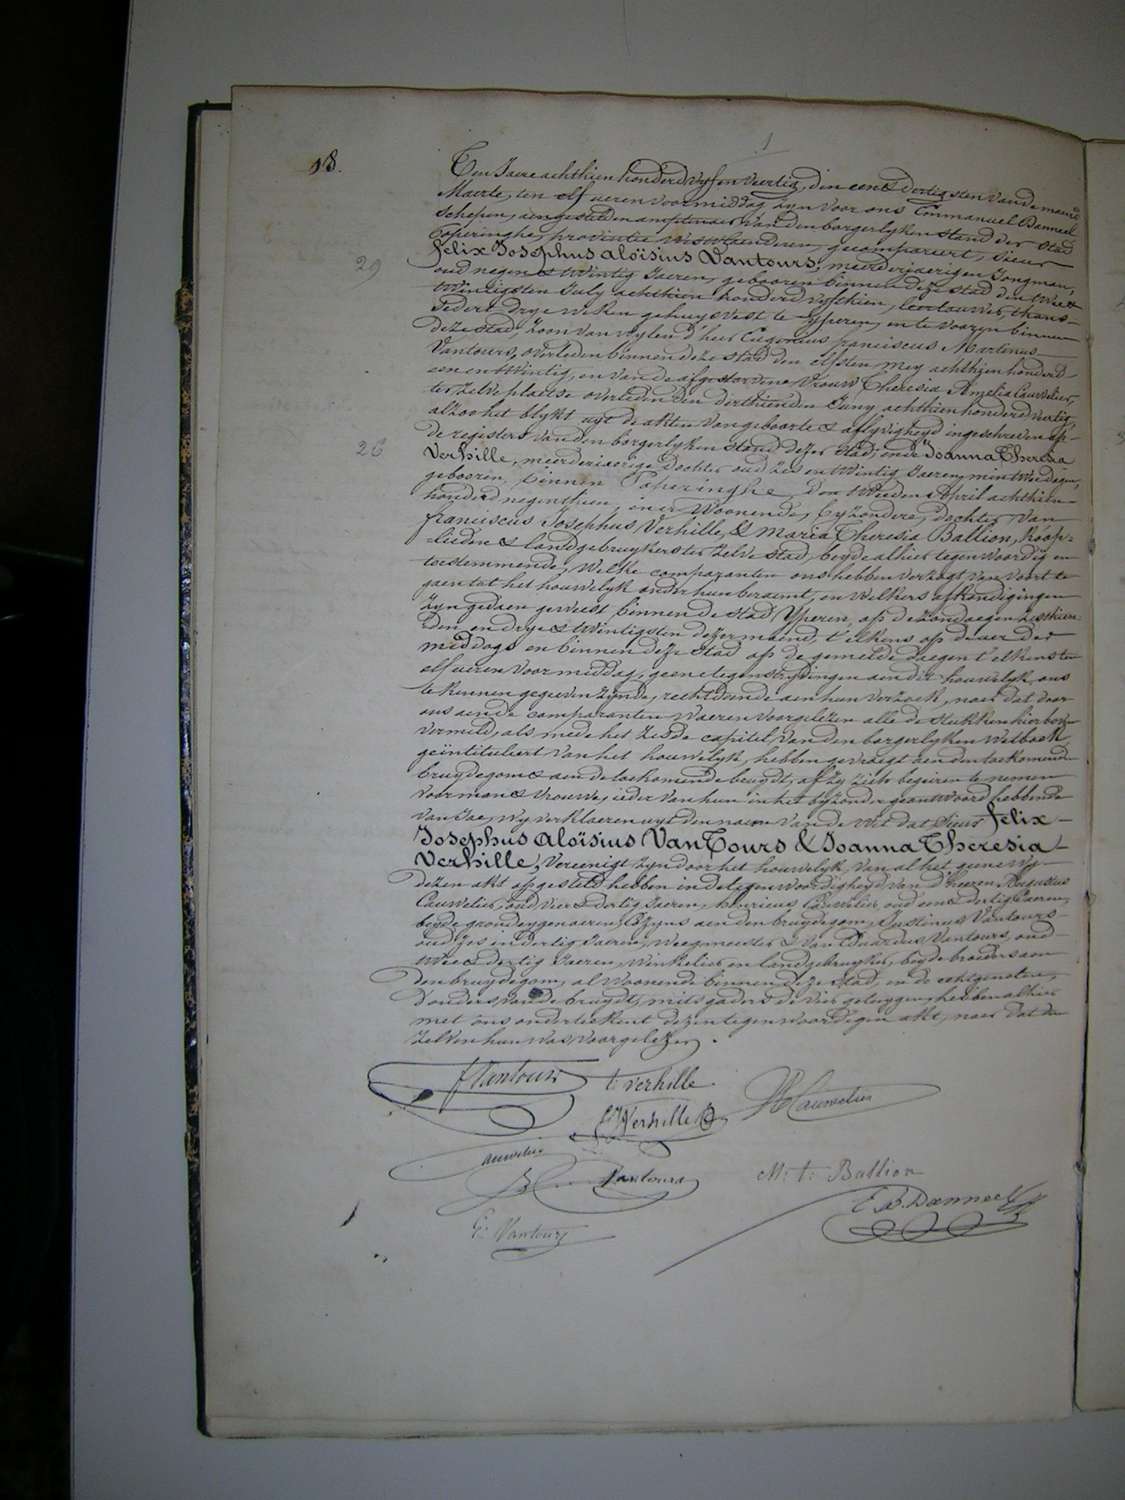 1
18.
Ten Jaere achthien honderd vyf en veertig, den een & dertigsten van de maend
Maerte, ten elf ueren voormiddag zyn voor ons Emmanuel Banneel
Schepen, aengestelden amptenaer van den borgerlyken stand der Stad
Poperinghe, provintie Westvlaenderen, gecompareert, Sieur
Felix Josephus Aloïsius Vantours, meerderjaerigen Jongman,
29
oud negen & twintig Jaeren, gebooren binnen deze stad den twee &
twintigsten July achthien honderd vyfthien, thans
zedert drye weken gehuysvest te Yperen, en te vooren binnen
deze stad, zoon van wylen d'heer Eugenius franciscus Martinus
Vantours, overleden binnen deze stad den elfsten Mey achthien honderd
een en twintig, en van de afgestorvene Vrouw Theresia Amelia Cauwelier,
ter zelve plaetse overleden den derthienden Juny achthien honderd veertig,
alzoo het blykt uyt de akten van geboorte & aflyvigheyd ingeschreven op
de registers van den borgerlyken stand dezer stad; ende Joanna Theresia
26
Verhille, meerderjaerige dochter oud zes en twintig Jaeren, min twee dagen,
gebooren binnen Poperinghe den tweeden April achthien
honderd negenthien, en er woonende, byzondere, dochter van
franciscus Josephus Verhille, & Maria Theresia Ballion, Koop-
lieden & landgebruykers ter zelve stad, beyde alhier tegenwoordig en
toestemmende, Welke comparanten ons hebben verzogt van voort te
gaen tot het houwelyk onder hun beraemt, en welkers afkondigingen
zyn gedaen geweest binnen de stad Yperen, op de zondaegen zesthien-
den, en drye & twintigsten dezer maend, t'elkens op de uer der
middags en binnen deze stad op de gemelde daegen t'elkens ten
elf ueren voormiddag; geene tegenstrydingen aen dit houwelyk, ons
te kennen gegeven zynde, rechtdoende aen hun verzoek, naer dat door
ons aen de comparanten waeren voorgelezen alle de stukken hier boven
vermeld, als mede het zesde capitel van den borgerlyken Wetboek
geïntituleert van het houwelyk, hebben gevraegt aen den toekomende
bruydegom & aen de toekomende bruydt, of zy zich begeiren te nemen
voor man & vrouwe; ieder van hun in het byzonder geantwoord hebbende
van Jae, wy verklaeren uyt den naem van de wet dat Sieur Felix
Josephus Aloïsius VanTours & Joanna Theresia
Verhille, Vereenigt zyn door het houwelyk, van al het geene wy
dezen akt opgesteld hebben in de tegenwoordigheyd van d'heeren Augustus
Cauwelier, oud vier & dertig Jaeren, henricus Cauwelier oud een & dertig Jaeren,
beyde grondeygenaeren, Cozyns aen den bruydegom, Justinus Vantours
oud zes en dertig Jaeren, weegmeester & van Eduardus Vantours, oud
twee & dertig Jaeren, winkelier en landgebruyker, beyde broeders aen
den bruydegom, al woonende binnen deze stad, en de echtgenoten,
d'ouders van de bruydt, mitsgaders de vier getuygen, hebben alhier
met ons onderteekent dezen tegenwoordigen akt, naer dat den
zelven hun was voorgelezen.
f Vantours t. verhille
F J Verhille Cauwelier
Cauwelier
Vantours M: t: Ballion
E: Vantours E. B. Banneel